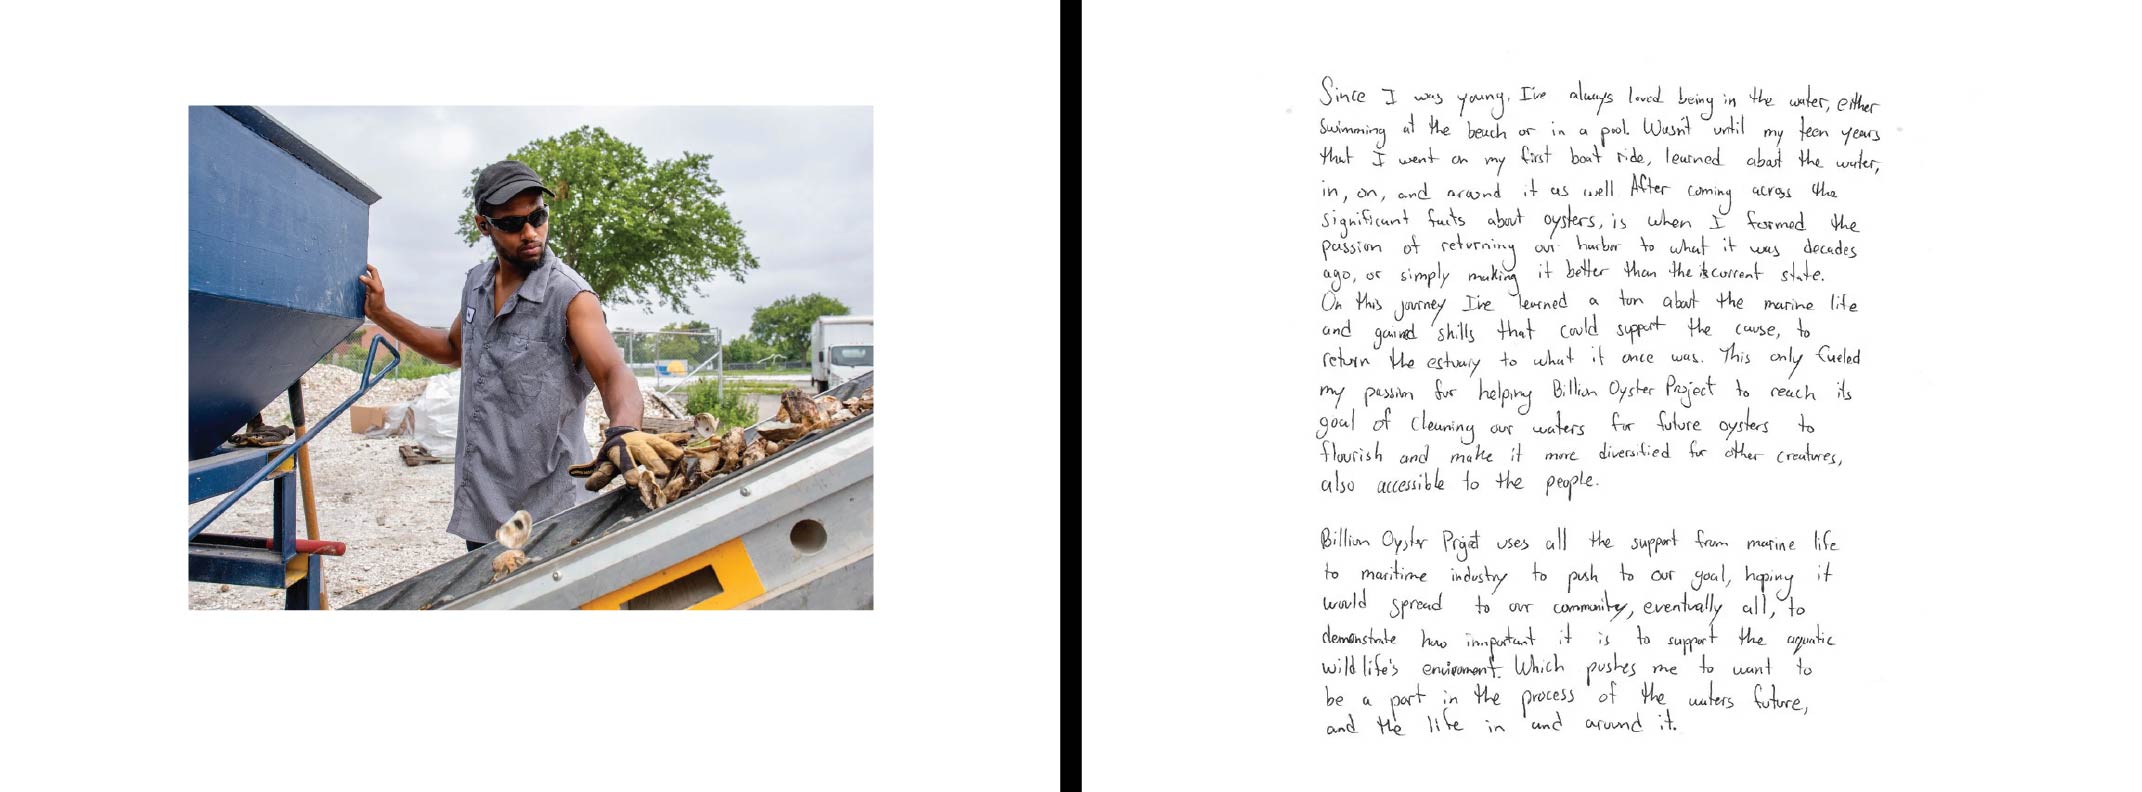 Since I was young, I've always loved being in the water, either
swimming at the beach or in a pool. Wasn't until my teen years
that I went on my first boat ride, learned about the water,
in, on, and around it as well. After coming across the
significant facts about oysters, is when I formed the
passion of returning our harbor to what it was decades
ago, or simply making it better than the current state.
On this journey I've learned a ton about the marine life
and gained skills that could support the cause, to
return the estuary to what it once was. This only fueled
my passion for helping Billion Oyster Project to reach its
goal of cleaning our waters for future oysters to
flourish and make it more diversified for other creatures,
also accessible to the people.
Billion Oyster Projct uses all the support from marine life
to maritime industry to push to our goal, hoping it
would spread to our community, eventually all, to
demonstrate how important it is to support the aquatic
wild life's enviroment. Which pushes me to want to
be a part in the process of the waters future,
and the life in and around it.